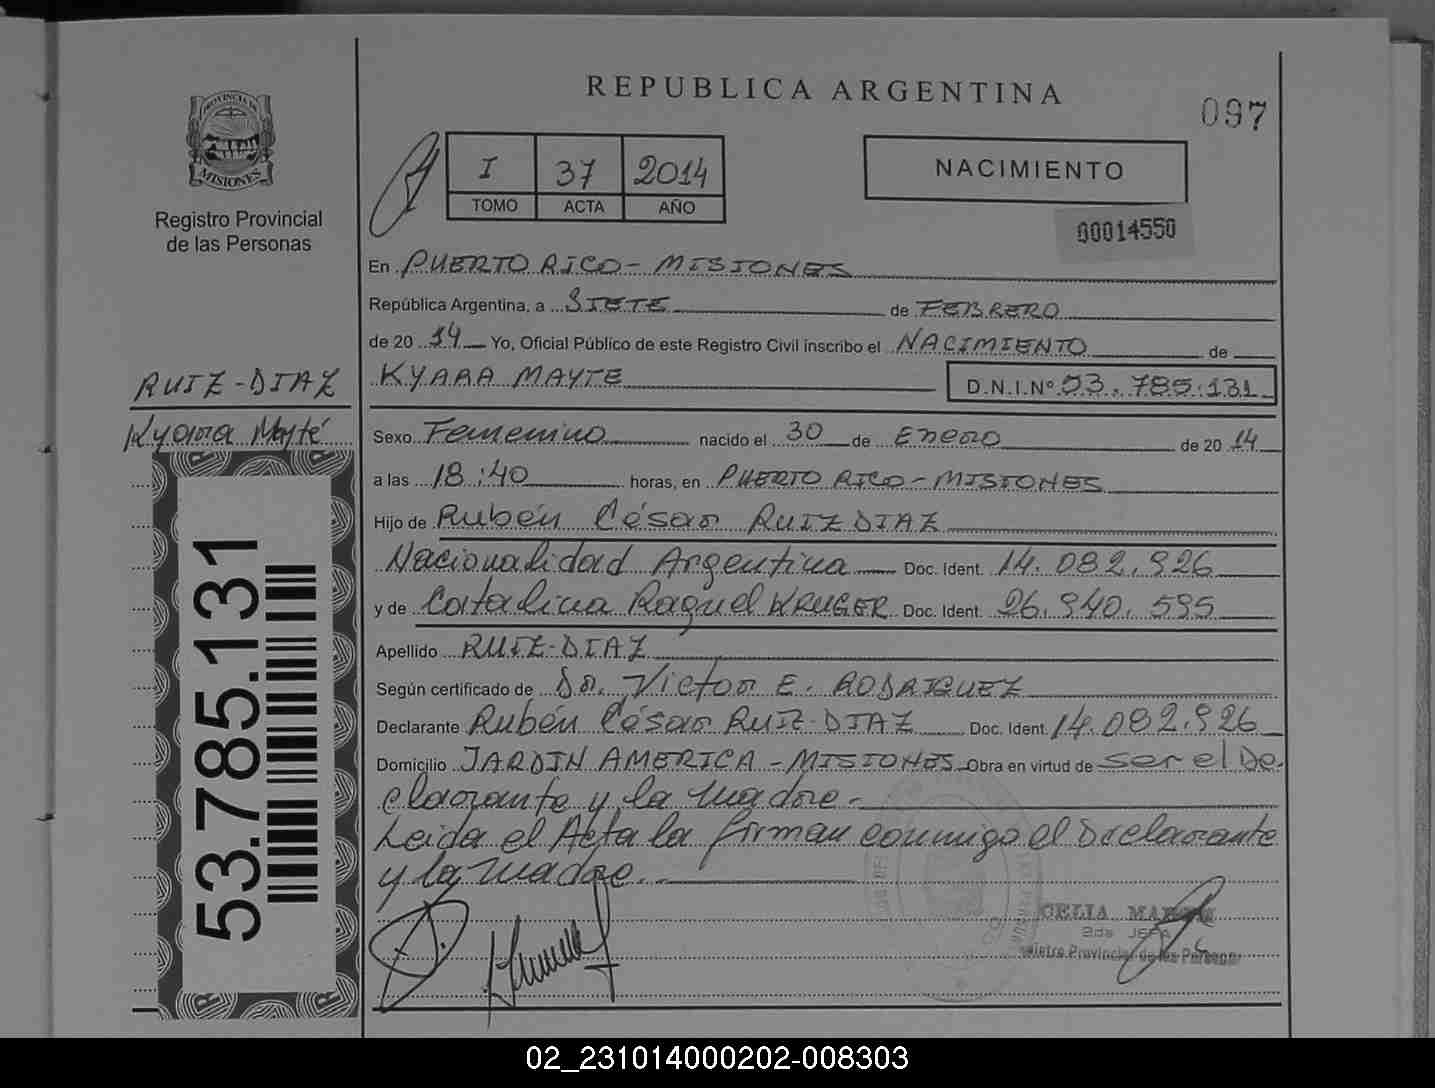 REPUBLICA ARGENTINA
097
PROVINCIA DE
MISIONES
Registro Provincial
de las Personas
I 37 2014
TOMO ACTA AÑO
NACIMIENTO
00014550
En PUERTO RICO - MISIONES
República Argentina, a SIETE de FEBRERO
de 20 14 Yo, Oficial Público de este Registro Civil inscribo el NACIMIENTO de
KYARA MAYTE D.N.I.Nº 53.785.131
RUIZ-DIAZ
Kyara Mayté
53.785.131
Sexo Femenino nacido el 30 de Enero de 20 14
a las 18:40 horas, en PUERTO RICO - MISIONES
Hijo de Rubén César RUIZ DIAZ
Nacionalidad Argentina Doc. Ident. 14.082.926
y de Catalina Raquel KRUGER Doc. Ident. 26.940.595
Apellido RUIZ-DIAZ
Según certificado de Dr. Victor E. RODRIGUEZ
Declarante Rubén César RUIZ-DIAZ Doc. Ident. 14.082.926
Domicilio JARDIN AMERICA - MISIONES Obra en virtud de ser el De
clarante y la madre.
Leida el Acta la firman conmigo el Declarante
y la madre.
CELIA
2da JEFA
Provincial de las Personas
02_231014000202-008303